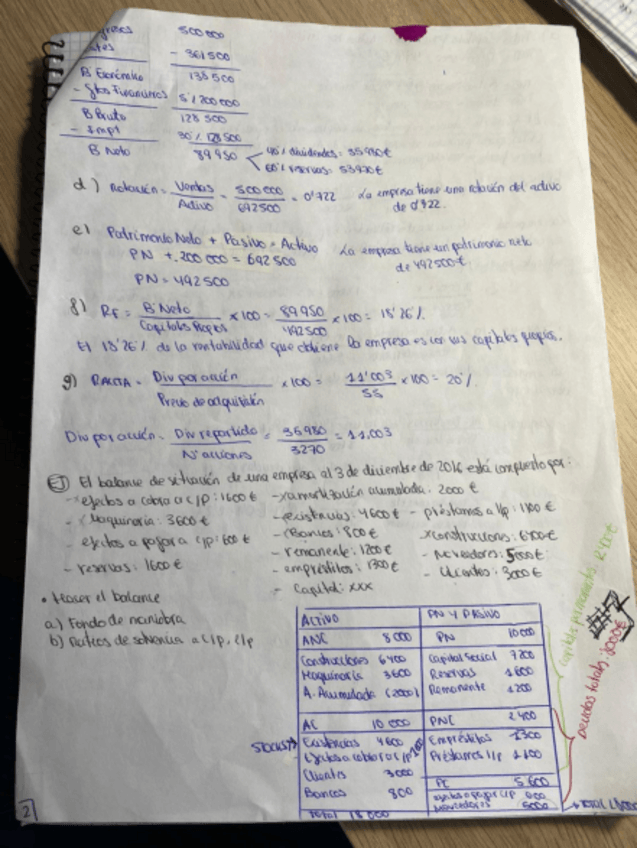 500 000
- 361 500
B Económico 138 500
- Gtos Financieros 5% 200 000
B Bruto 128 500
- Impt 30% 128 500
B Neto 89 950
40% dividendos: 35980€
60% reservas: 53970€
d) Rotación = Ventas / Activo = 500 000 / 692 500 = 0'722 La empresa tiene una rotación del activo de 0'722.
e) Patrimonio Neto + Pasivo = Activo
PN + 200 000 = 692 500
PN = 492 500
La empresa tiene un patrimonio neto de 492 500€.
f) RF = B Neto / Capitales Propios x 100 = 89 950 / 492 500 x 100 = 18'26%
El 18'26% de la rentabilidad que obtiene la empresa es con sus capitales propios.
g) = Div por acción / Precio de adquisición x 100 = 11'003 / 55 x 100 = 20%
Div por acción = Div repartido / Nº acciones = 35980 / 3270 = 11,003
EJ El balance de situación de una empresa al 3 de diciembre de 2016 está compuesto por:
- efectos a cobrar a c/p: 1600€ - amortización acumulada: 2000€
- Maquinaria: 3600€ - existencias: 4600€ - préstamos a l/p: 1100€
- efectos a pagar a c/p: 600€ - Bancos: 800€ - construcciones: 6400€
- reservas: 1600€ - remanente: 1200€ - proveedores: 5000€
- empréstitos: 1300€ - clientes: 3000€
- Capital: xxx
• Hacer el balance
a) Fondo de maniobra
b) Ratios de solvencia a c/p,
ACTIVO PN Y PASIVO
ANC 8 000 PN 10000
Construcciones 6400 Capital Social 7200
Maquinaria 3600 Reservas 1600
A. Acumulada (2000) Remanente 1200
AC 10 000 PNC 2 400
STOCKS Existencias 4600 Empréstitos 1300
Efectos a cobrar a c/p 1600 Préstamos l/p 1100
Clientes 3000 PC 5 600
Bancos 800 efectos a pagar c/p 600
proveedores 5000
Total 18 000 TOTAL 18000
capitales permanentes: 12400€
Deudas totales: 8000€
2